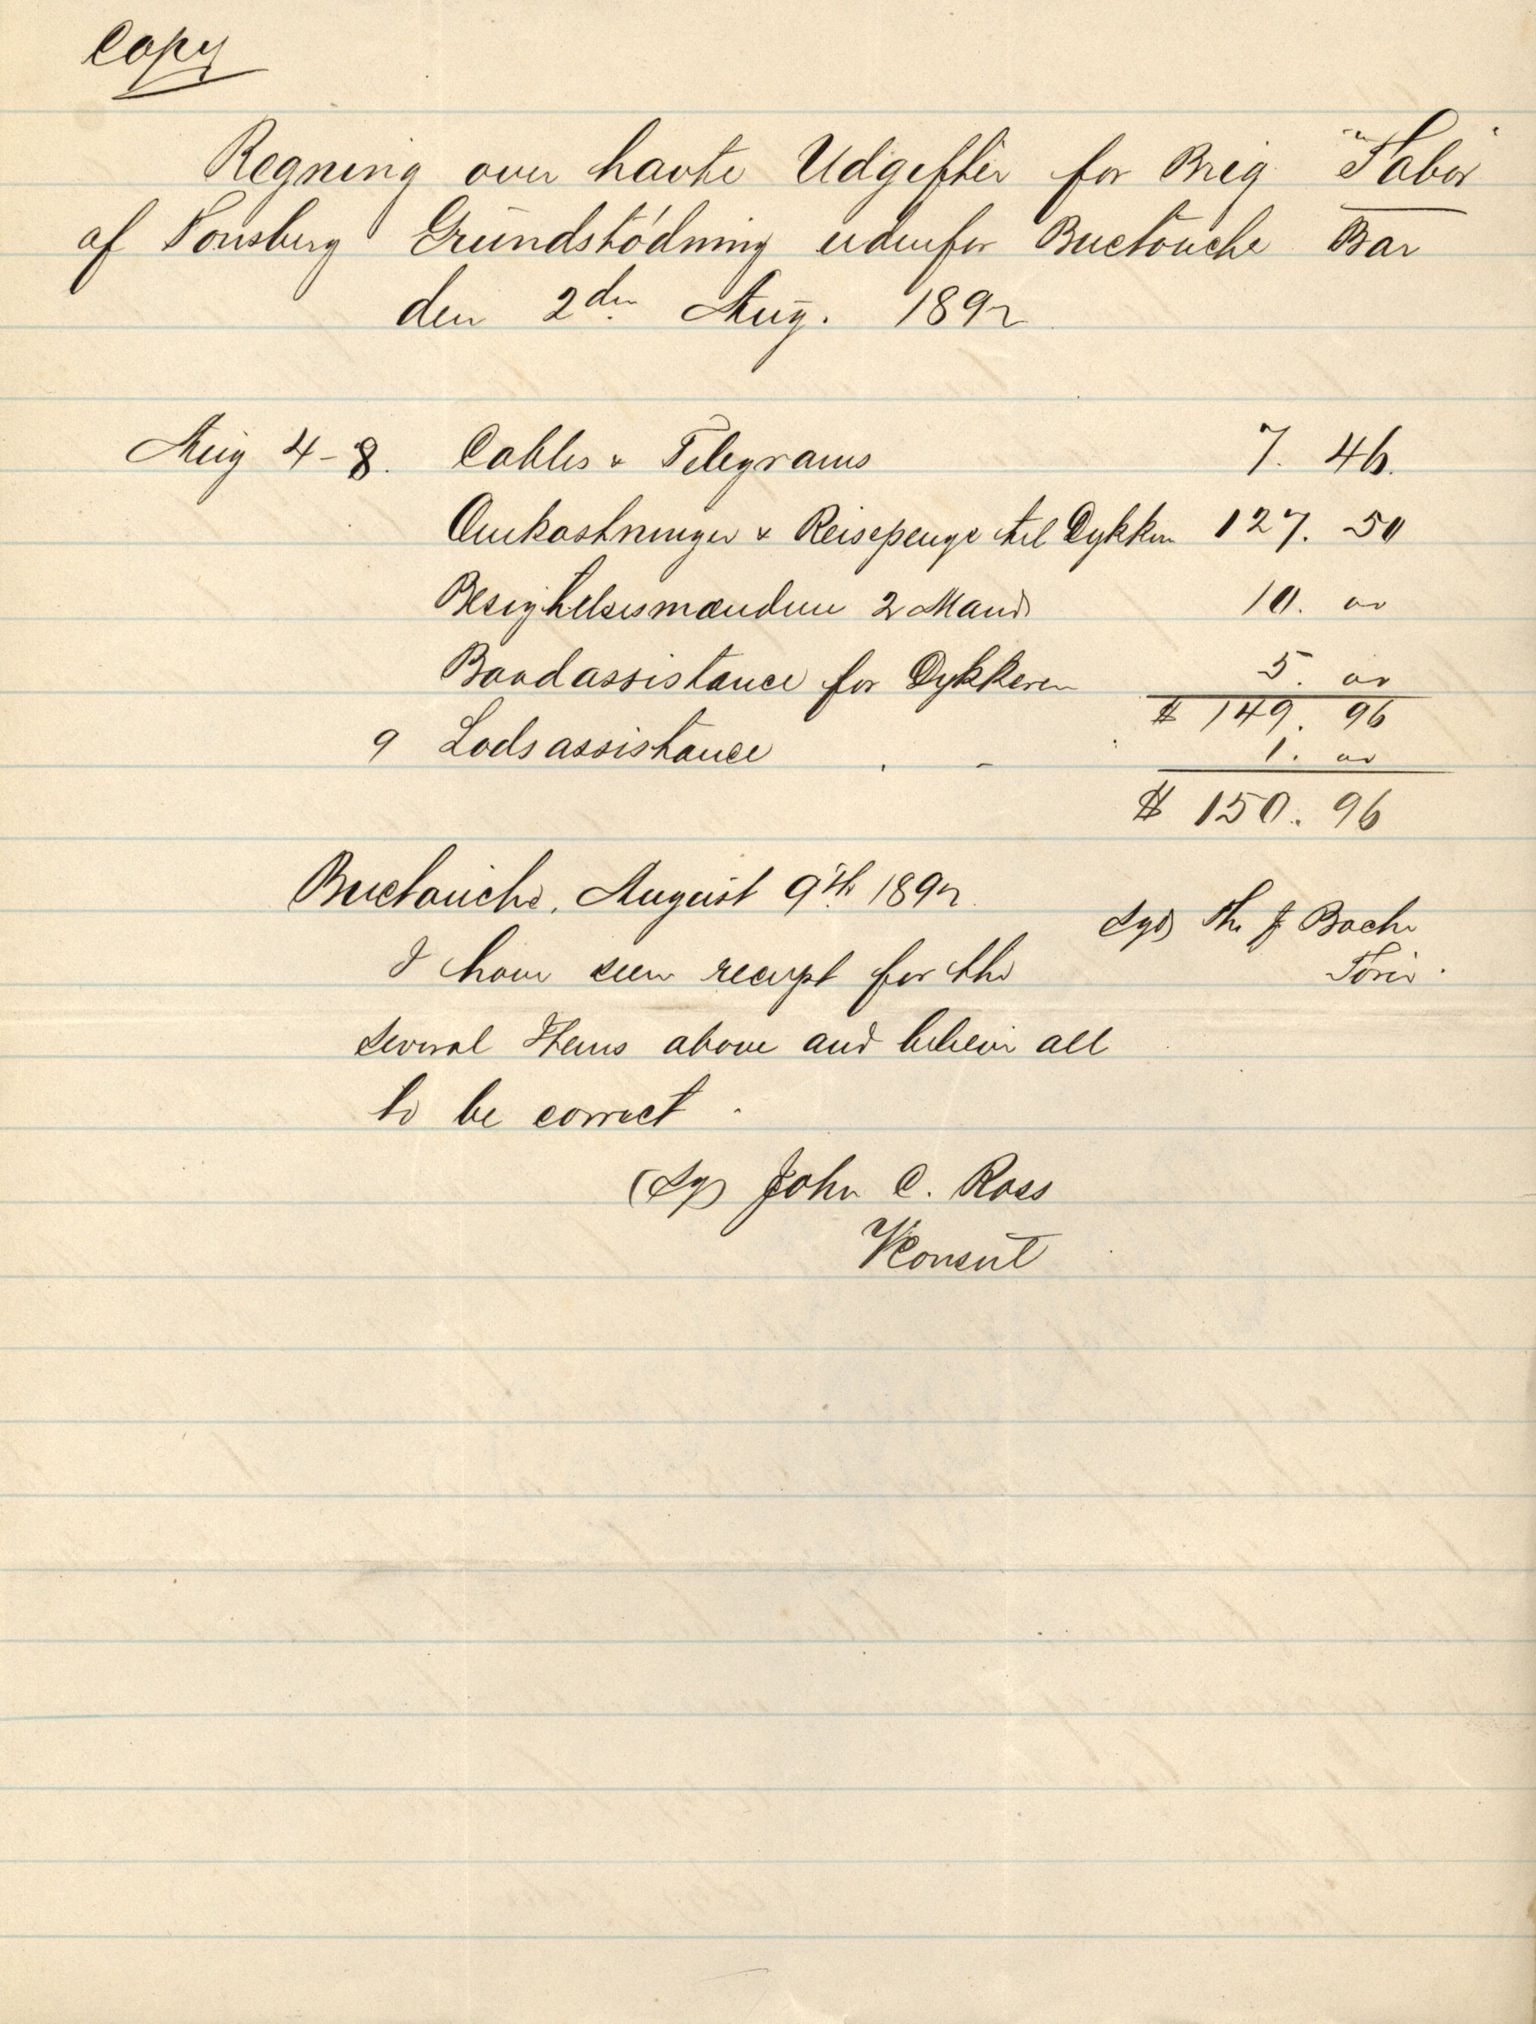 Copy
Regning over havte Udgifter for Brig "Tabor"
af Tonsberg Grundstödning udenfor Buctouche Bar
den 2den Aug. 1892
Aug 4-8. Cables & Telegrams 7. 46.
Omkostninger & Reisepenge til Dykker 127. 50
Besigtelsesmændene 2 Mand 10. 00
Baadassistance for Dykkeren 5. 00
$ 149. 96
9 Lodsassistance - 1. 00
$ 150. 96
Buctouche, August 9th 1892
Sgd Th. J Bache
Förer.
I have seen receipt for the
several Items above and believe all
to be correct.
(Sg) John C. Ross
VConsul